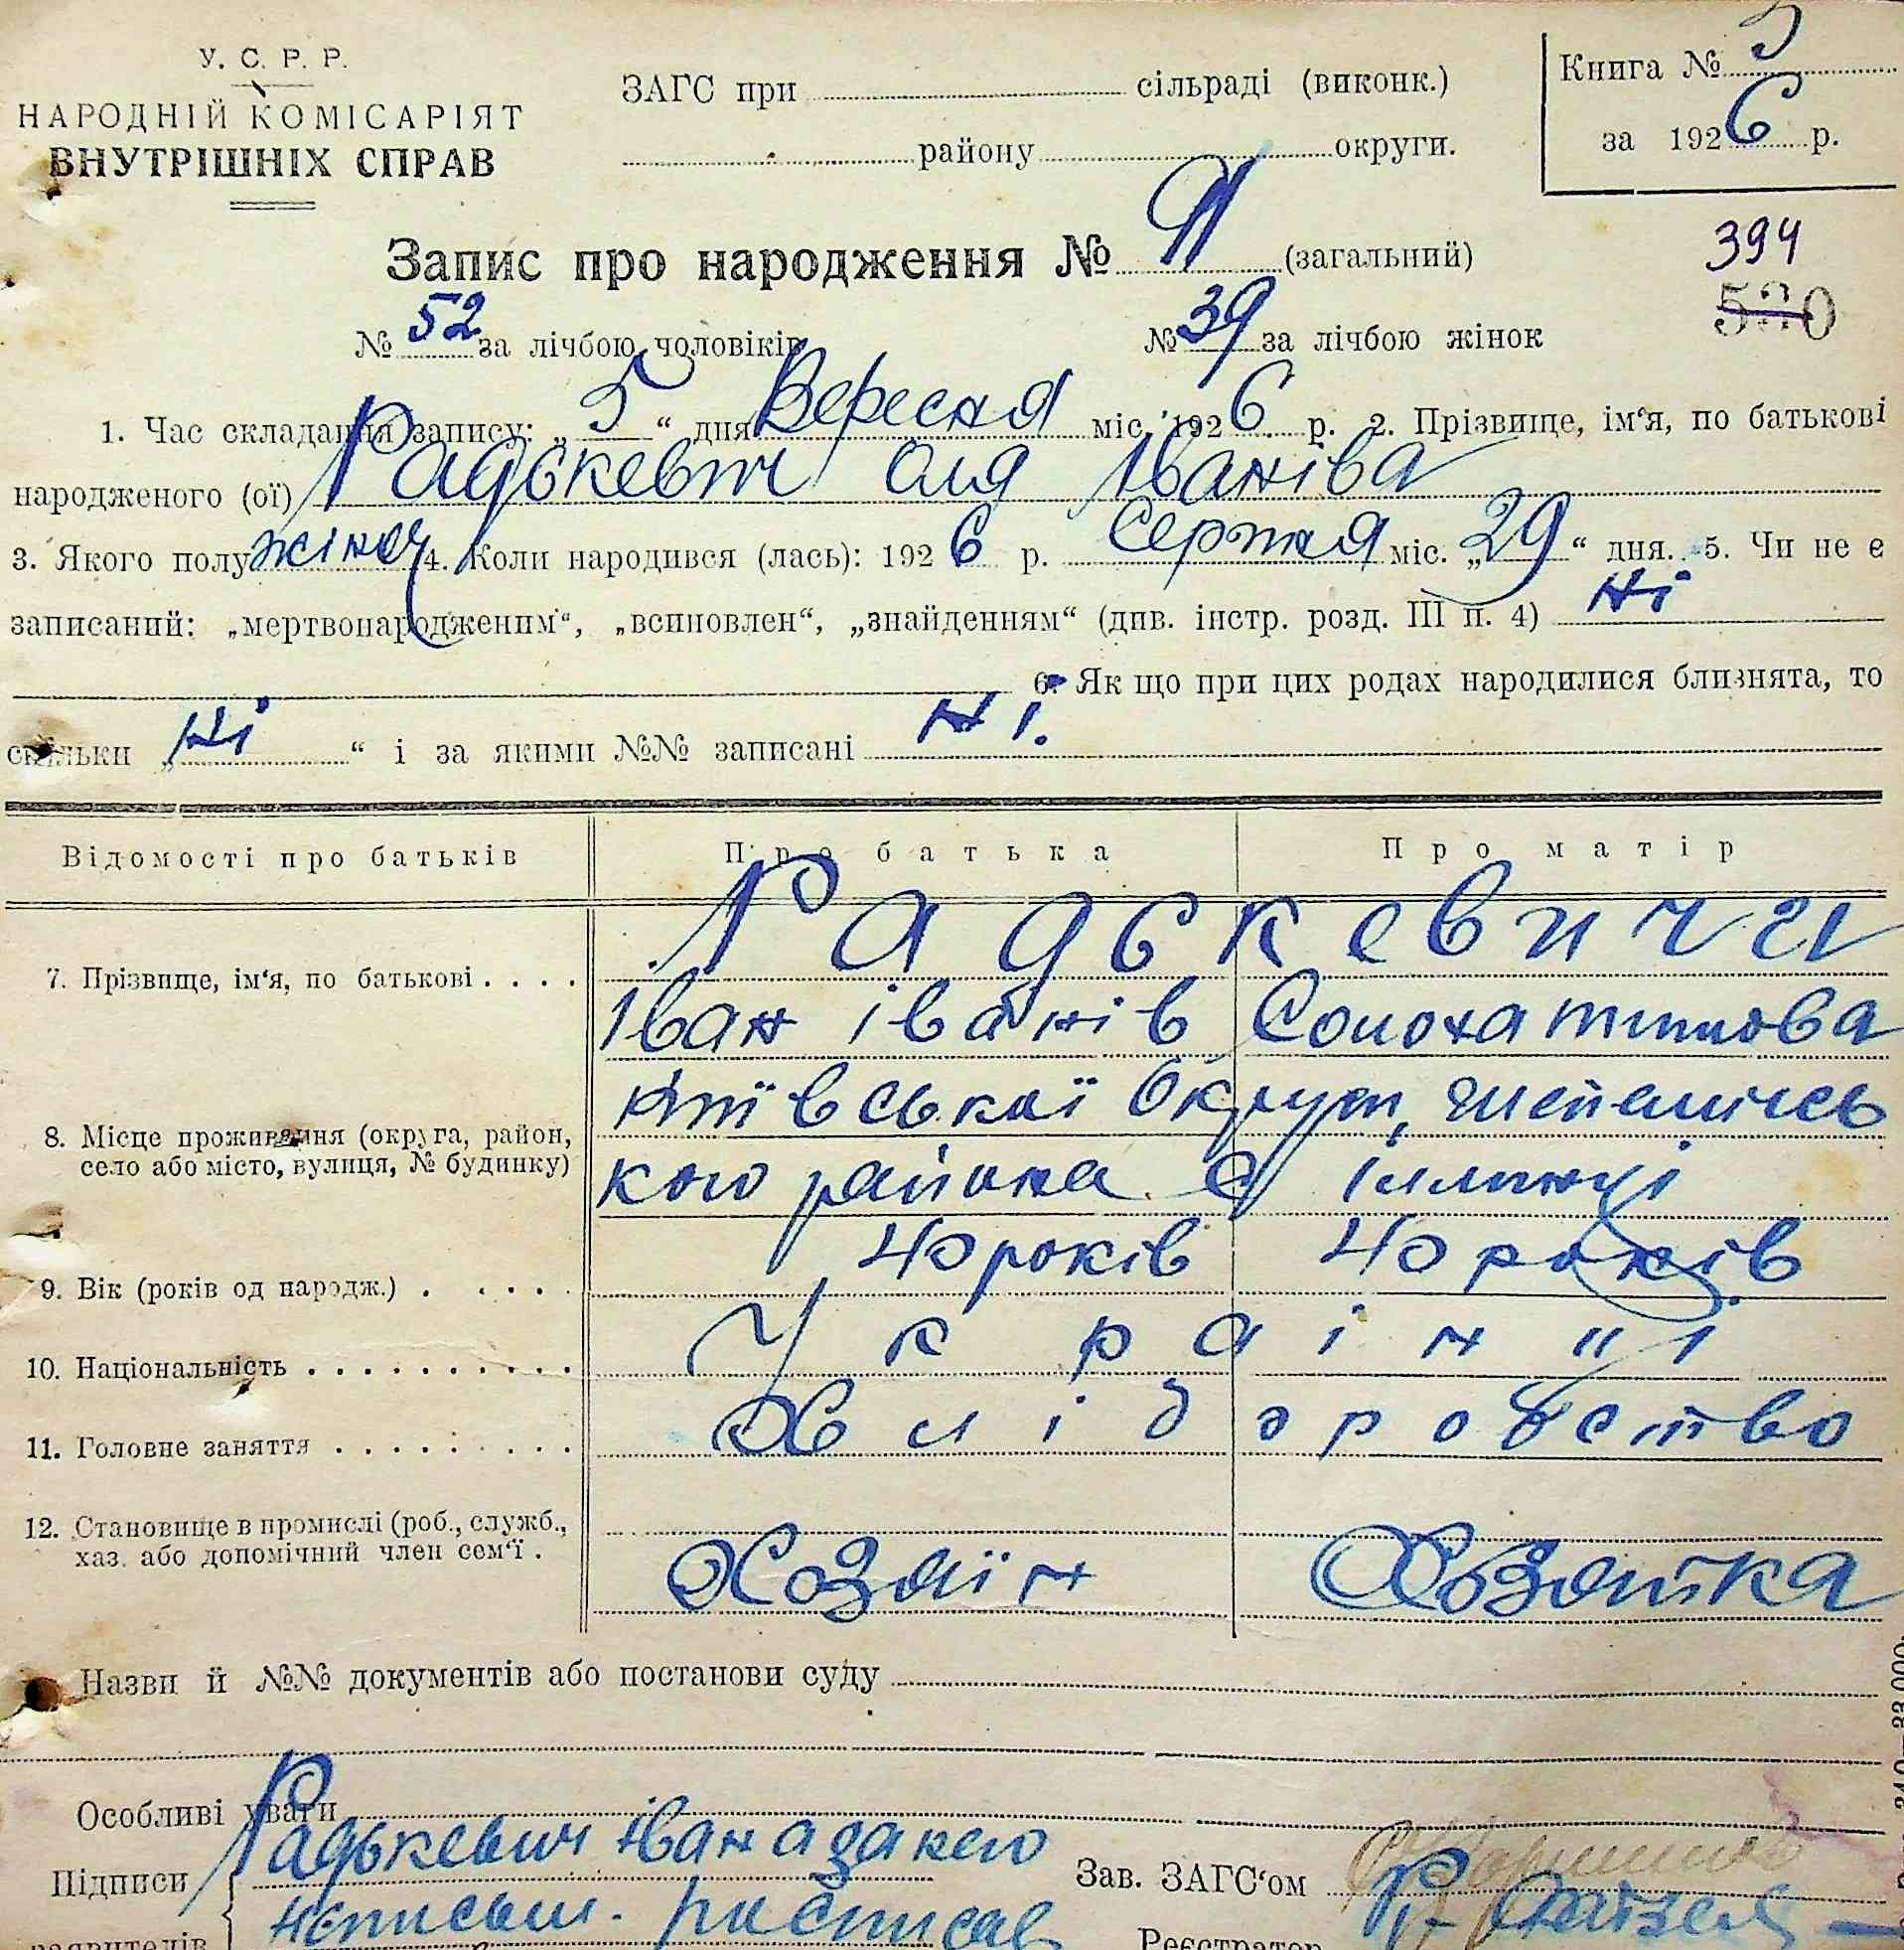 У. С. Р. Р.
НАРОДНІЙ КОМІСАРІЯТ
ВНУТРІШНІХ СПРАВ
ЗАГС при сільраді (виконк.)
району округи.
Книга №
за 1926 р.
Запис про народження № 91 (загальний)
394
№ 52 за лічбою чоловіків № 39 за лічбою жінок
1. Час складання запису: „5“ дня Вересня міс. 1926 р. 2. Прізвище, ім‘я, по батькові
народженого (ої) Радькевич Оля Іваніва
3. Якого полу жіноч 4. Коли народився (лась): 1926 р. Серпня міс. „29“ дня. 5. Чи не є
записаний: „мертвонародженим“, „всиновлен“, „знайденням“ (див. інстр. розд. III п. 4) Ні
6. Як що при цих родах народилися близнята, то
скільки „Ні“ і за якими №№ записані Ні.
Відомості про батьків Про батька Про матір
7. Прізвище, ім‘я, по батькові . . . . Радькевичи
Іван Іванів
8. Місце проживання (округа, район,
село або місто, вулиця, № будинку)
Київської Округи,
кого района с
9. Вік (років од народж.) . . . . . 40 років 40 років
10. Національність . . . . . . . . . . Українці
11. Головне заняття . . . . . . . . . Хліборобство
12. Становище в промислі (роб., служб.,
хаз. або допомічний член сем‘ї .
Хозяїн Хозяйка
Назви й №№ документів або постанови суду
Особливі уваги
Підписи Радькевич Іван а за него
Зав. ЗАГС‘ом
заявителів
Реєстратор